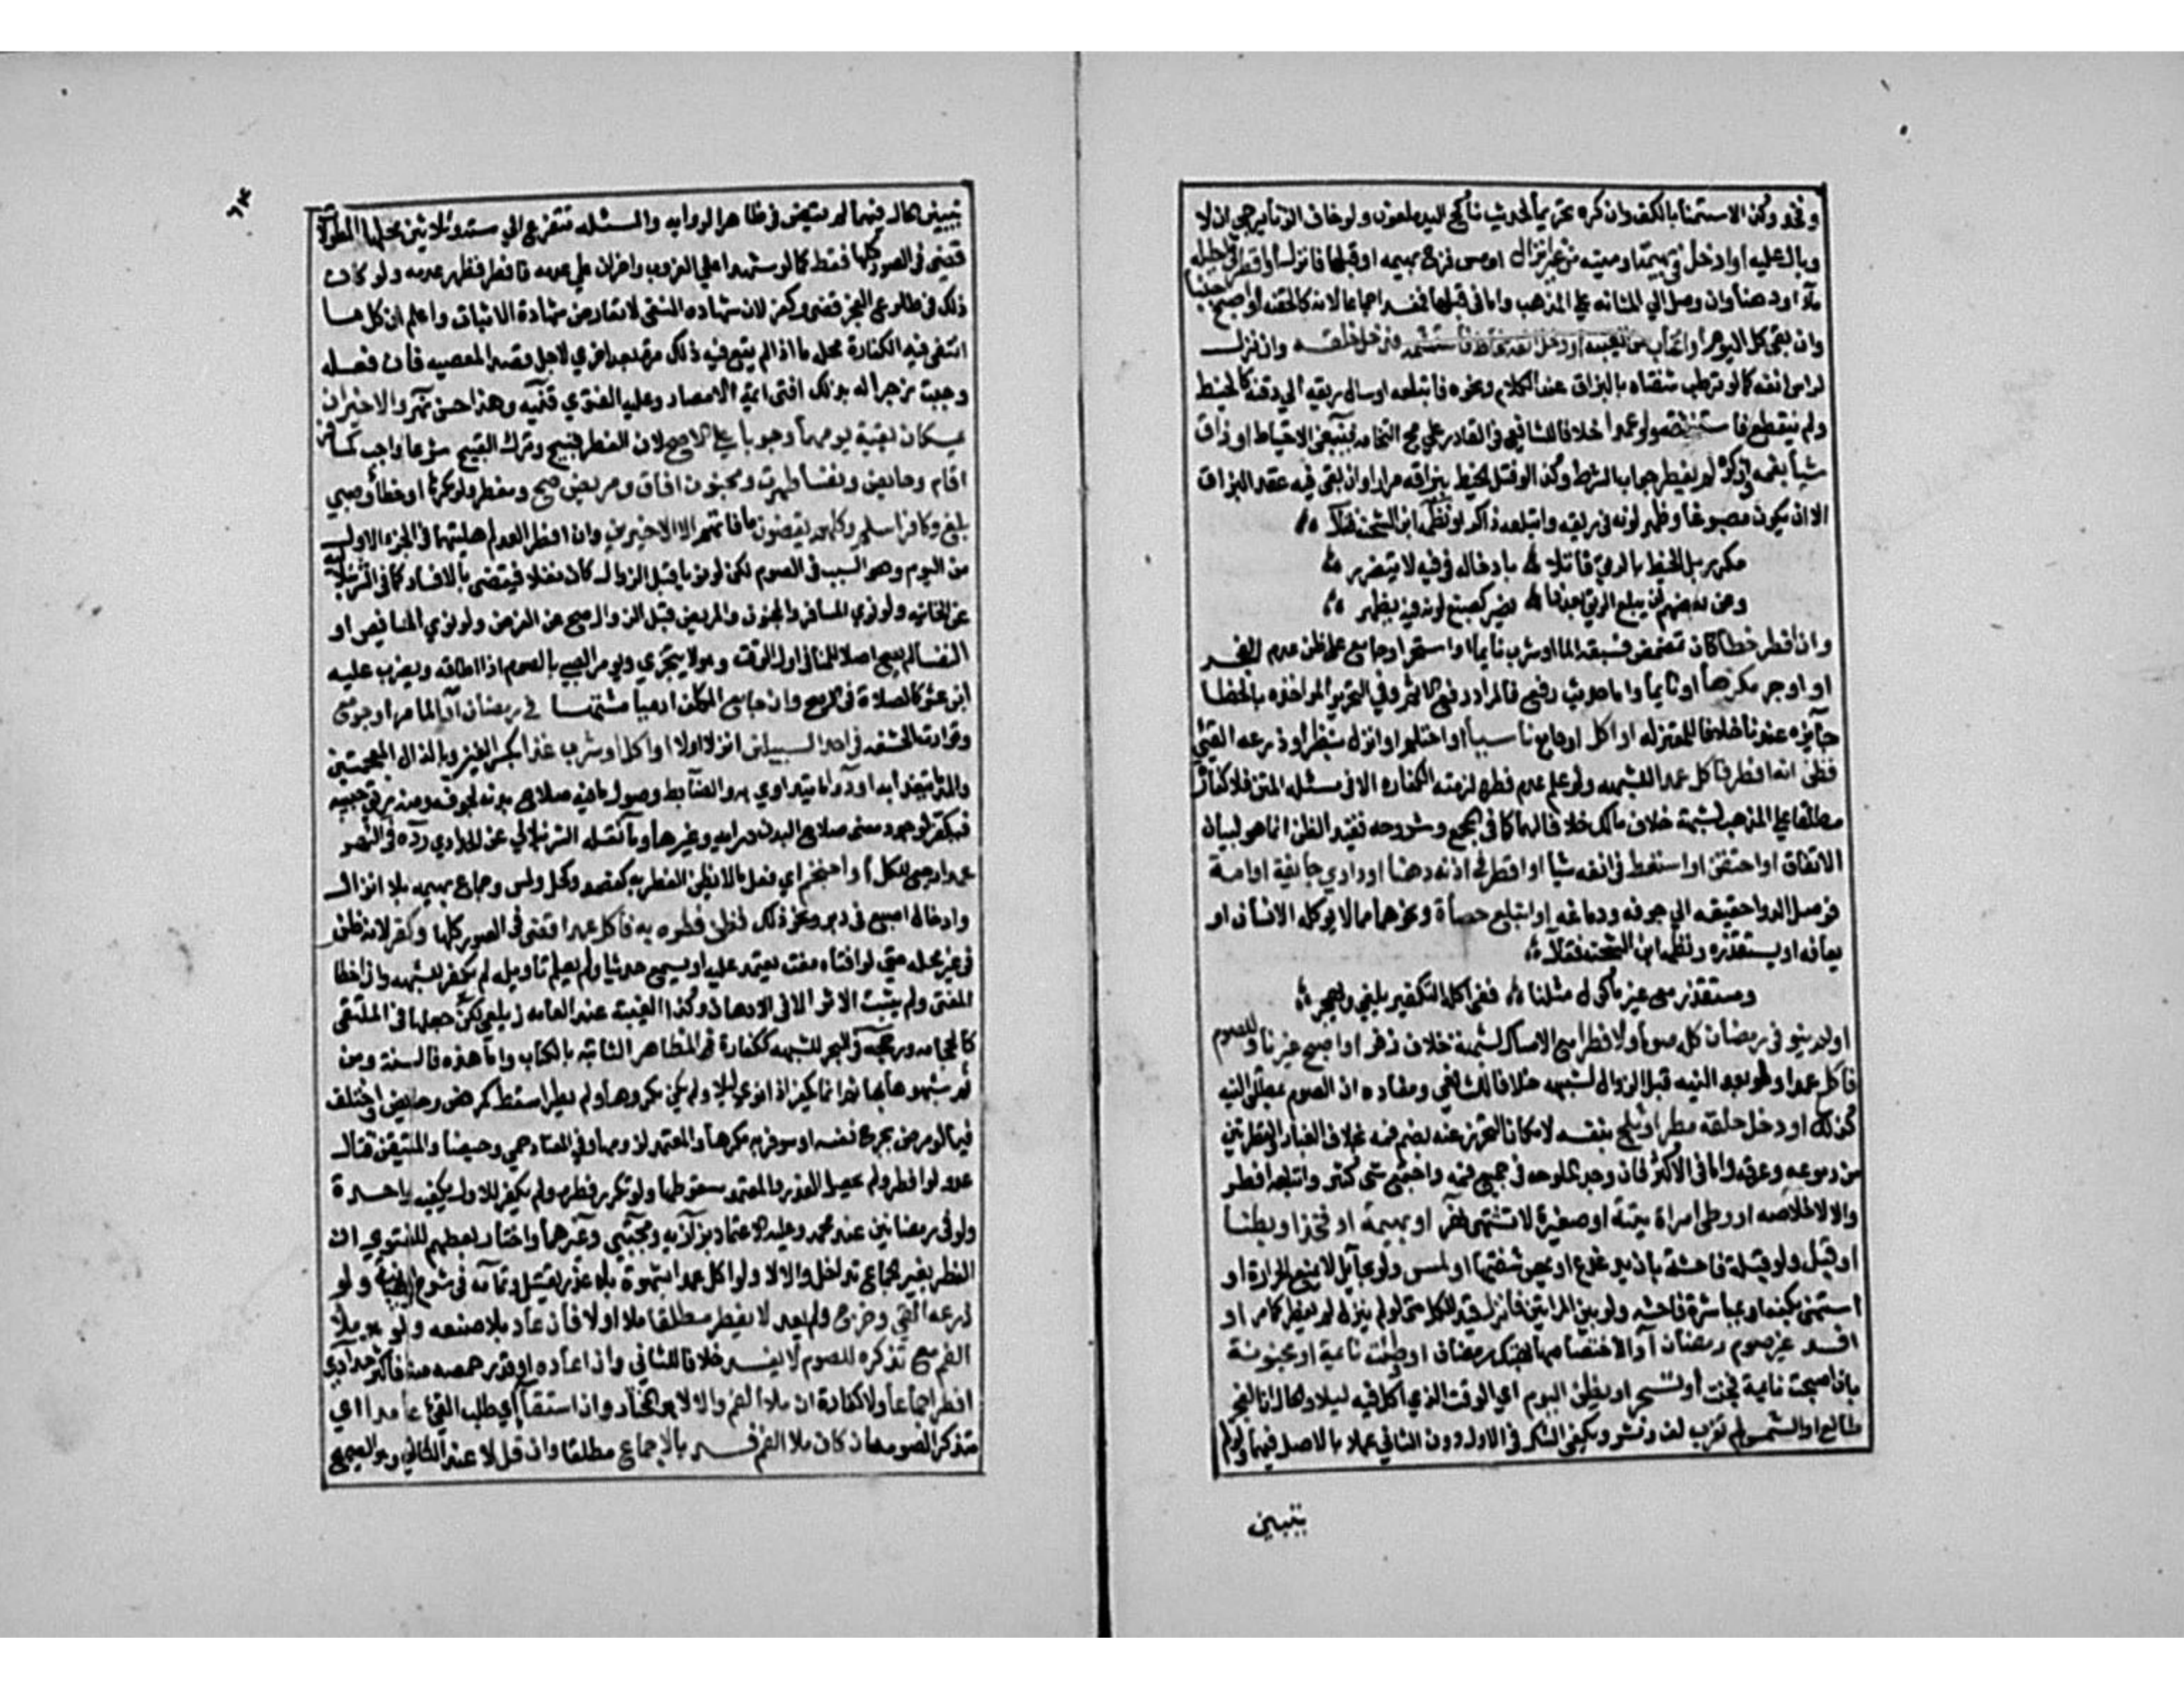 وفخذ وكذا الاستمنا بالكف وان كره تحريما لحديث ناكح اليد ملعون ولو خاف الزنا يرجى ان لا
وبال عليه او ادخل ذكره في بهيمة او ميتة من غير انزال او مس فرج بهيمة او قبلها فانزل او اقطر في احليله
ماء او دهنا وان وصل الى المثانه على المذهب واما في قبلها فمفسد اجماعا لانه كالحقنه او اصبح جنبا
وان بقي كل اليوم او اغتاب من الغيبه او دخل انفه مخاط فاستشمه فدخل حلقه وان نزل
لراس انفه كما لو ترطب شفتاه بالبزاق عند الكلام ونحوه فابتلعه او سال ريقه الى ذقنه كالخيط
ولم ينقطع فاستنشقه ولو عمدا خلافا للشافعي في القادر على مج النخامه فينبغي الاحتياط او ذاق
شيأ بفمه وان كره لم يفطر جواب الشرط وكذا لو فتل الخيط ببزاقه مرارا وان بقي فيه عقد البزاق
الا ان يكون مصبوغا وظهر لونه في ريقه وابتلعه ذاكرا ونظمه ابن الشحنه فقال
مكرر بل الخيط بالريق فاتلا بادخاله في فيه لا يتضرر
وعن بعضهم ان يبلع الريق بعد ذا يضر كصبغ لونه فيه يظهر
وان افطر خطأ كان تمضمض فسبقه الما او شرب نايما او تسحر او جامع على ظن عدم الفجر
او اوجر مكرها او نايما واما حديث رفع فالمراد رفع الاثم وفي التحرير المواخذه بالخطا
جائزه عندنا خلافا للمعتزله او اكل او جامع ناسيا او احتلم او انزل بنظر او ذرعه القيئ
فظن انه افطر فاكل عمدا للشبهه ولو علم عدم فطره لزمته الكفاره الا في مسئله المتن فلا كفارة
مطلقا على المذهب لشبهة خلاف مالك خلافا لهما كما في المجمع وشروحه فقيد الظن انما هو لبيان
الاتفاق او احتقن او استعط في انفه شيأ او اقطر في اذنه دهنا او داوى جايفة او امة
فوصل الدوا حقيقه الى جوفه ودماغه او ابتلع حصاة ونحوهما مما لا ياكله الانسان او
يعافه او يستقذره ونظمه ابن الشحنه فقال
ومستقذر مع غير ماكول مثلنا ففي اكله التكفير يلغى ويهجر
او لم ينو في رمضان كله صوما ولا فطرا مع الامساك لشبهة خلاف زفر او اصبح غير ناو للصوم
فاكل عمدا ولو بعد النيه قبل الزوال لشبهه خلاف الشافعي ومفاده ان الصوم بمطلق النيه
كذلك او دخل حلقه مطر او ثلج بنفسه لامكان التحرز عنه بضم فمه بخلاف الغبار والقطرتين
من دموعه وعرقه واما في الاكثر فان وجد الملوحه في جميع فمه واجتمع شئ كثير وابتلعه افطر
والا لا خلاصه او وطئ امراة ميتة او صغيرة لا تشتهى نهر او بهيمة او فخذا او بطنا
او قبل ولو قبلة فاحشة بان يدغدغ او يمص شفتيها او لمس ولو بحائل لا يمنع الحرارة او
استمنى بكفه او بمباشرة فاحشه ولو بين المراتين فانزل قيد للكل حتى لو لم ينزل لم يفطر كما مر او
افسد غير صوم رمضان آدا لاختصاصها بهتك رمضان او وطئت نائمة او مجنونة
بان اصبحت نائمة فجنت او تسحر او يظن اليوم اي الوقت الذي اكل فيه ليلا والحال ان الفجر
طالع او الشمس لم تغرب لف ونشر ويكفي الشك في الاول دون الثاني عملا بالاصل فيهما ولو لم
يتبين
٦٣
يتبين الحال فيهما لم يقض في ظاهر الروايه والمسئله تتفرع الى ستة وثلاثين محلها المطولات
قضى في الصور كلها فقط كما لو شهدا على الغروب واخران على عدمه فافطر فظهر عدمه ولو كان
ذلك في طلوع الفجر قضى وكفر لان شهاده النفي لا تعارض شهادة الاثبات واعلم ان كل ما
انتفى فيه الكفارة محله ما اذا لم يقع فيه ذلك مرة بعد اخرى لاجل قصد المعصيه فان فعله
وجبت زجرا له بذلك افتى ائمة الامصار وعليه الفتوي قنيه وهذا حسن نهر والاخيران
يمسكان بقية يومهما وجوبا على الاصح لان الفطر قبيح وترك القبيح شرعا واجب كمسافر
اقام وحايض ونفسا طهرت ومجنون افاق ومريض صح ومفطر ولو مكرها او خطأ وصبي
بلغ وكافر اسلم وكلهم يقضون ما فاتهم الا الاخيرين وان افطرا لعدم اهليتهما في الجزء الاول
من اليوم وهو السبب في الصوم لكن لو نويا قبل الزوال كان نفلا فيقضى بالافساد كما في الشرنبلاليه
عن الخانيه ولو نوى المسافر والمجنون والمريض قبل الزوال صح عن الفرض ولو نوى الحايض او
النفسا لم يصح اصلا للمنافي اول الوقت وهو لا يتجزي ويومر الصبي بالصوم اذا اطاقه ويضرب عليه
ابن عشر كالصلاة في الاصح وان جامع المكلف ادميا مشتهى في رمضان آدا لما مر او جومع
وتوارت الحشفه في احد السبيلين انزل اولا او اكل او شرب غذا بكسر الغين وبالذال المعجمتين
والمد ما يتغذى به او دوآ ما يتداوى به والضابط وصول ما فيه صلاح بدنه لجوفه ومنه ريق حبيبه
فيكفر لوجود معنى صلاح البدن درايه وغيرها وما نقله الشرنبلالي عن الحدادي رده في النهر
عمدا راجع للكل او احتجم اي فعل ما لا يظن الفطر به كفصد وكحل ولمس وجماع بهيمه بلا انزال
وادخال اصبع في دبر ونحو ذلك فظن فطره به فاكل عمدا قضى في الصور كلها وكفر لانه ظن
في غير محله حتى لو افتاه مفت يعتمد عليه او سمع حديثا ولم يعلم تاويله لم يكفر للشبهه وان اخطا
المفتى ولم يثبت الاثر الا في الادهان وكذا الغيبة عند العامه زيلعي لكن جعلها في الملتقى
كالحجامه ورجحه في البحر للشبهه ككفارة المظاهر الثابته بالكتاب واما هذه فبالسنة ومن
ثم شبهوها بها ثم انما يكفر اذا نوى ليلا ولم يكن مكرها ولم يطرا مسقط كمرض وحيض واختلف
فيما لو مرض بجرح نفسه او سوفر به مكرها والمعتمد لزومها وفي المعتاد حمى وحيضا والمتيقن قتال
عدو لو افطر ولم يحصل العذر والمعتمد سقوطها ولو تكرر فطره ولم يكفر للاول يكفيه واحدة
ولو في رمضانين عند محمد وعليه الاعتماد بزازيه ومجتبى وغيرهما واختار بعضهم للفتوى ان
الفطر بغير الجماع تداخل والا لا ولو اكل عمدا شهرة بلا عذر يقتل وتمامه في شرح الوهبانيه ولو
ذرعه القيئ وخرج ولم يعد لا يفطر مطلقا ملا اولا فان عاد بلا صنعه ولو هو ملأ
الفم مع تذكره للصوم لا يفسد خلافا للثاني وان اعاده او قدر حمصه منه فاكثر حدادي
افطر اجماعا ولا كفارة ان ملأ الفم والا لا هو المختار وان استقا اي طلب القيئ عامدا اي
متذكرا لصومه ان كان ملا الفم فسد بالاجماع مطلقا وان قل لا عند الثاني وهو الصحيح